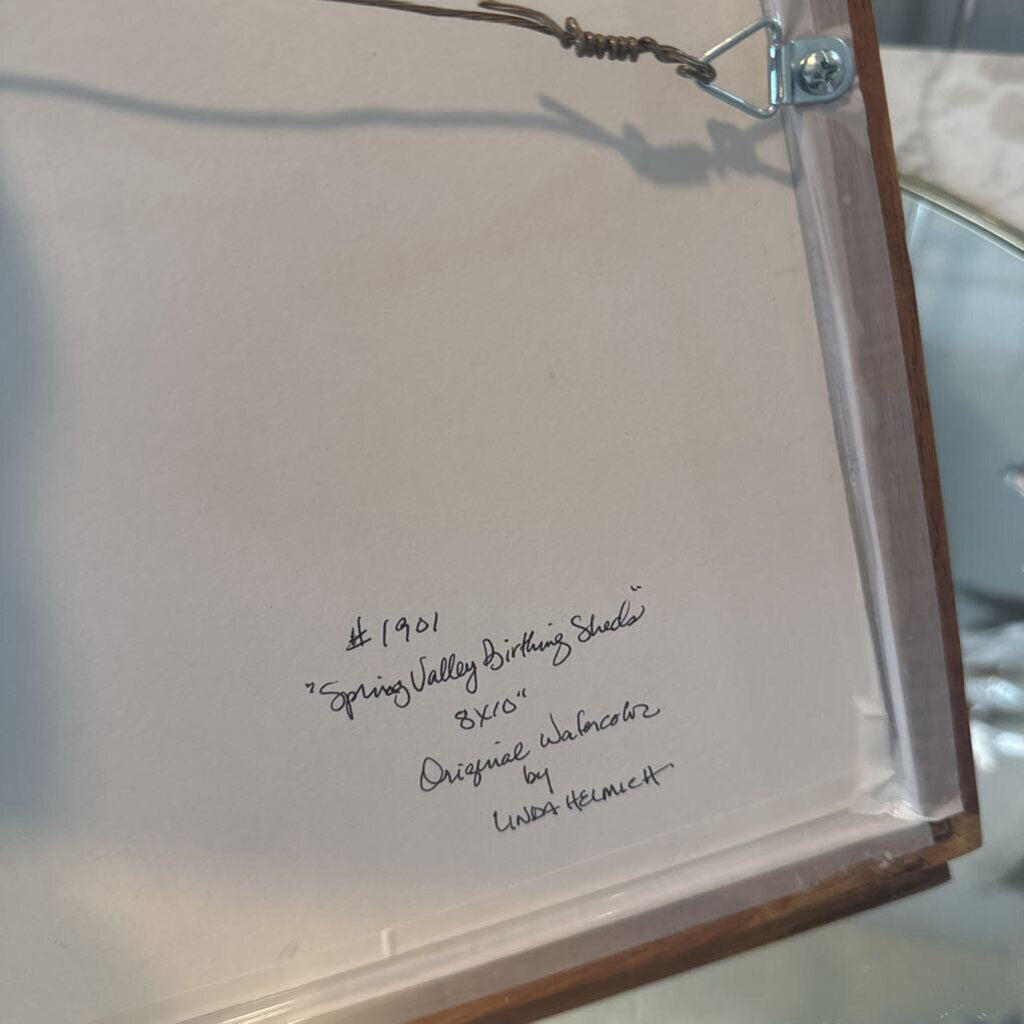 # 1901
"Spring Valley Birthing Sheds"
8x10"
Original Watercolor
by
LINDA HELMICH